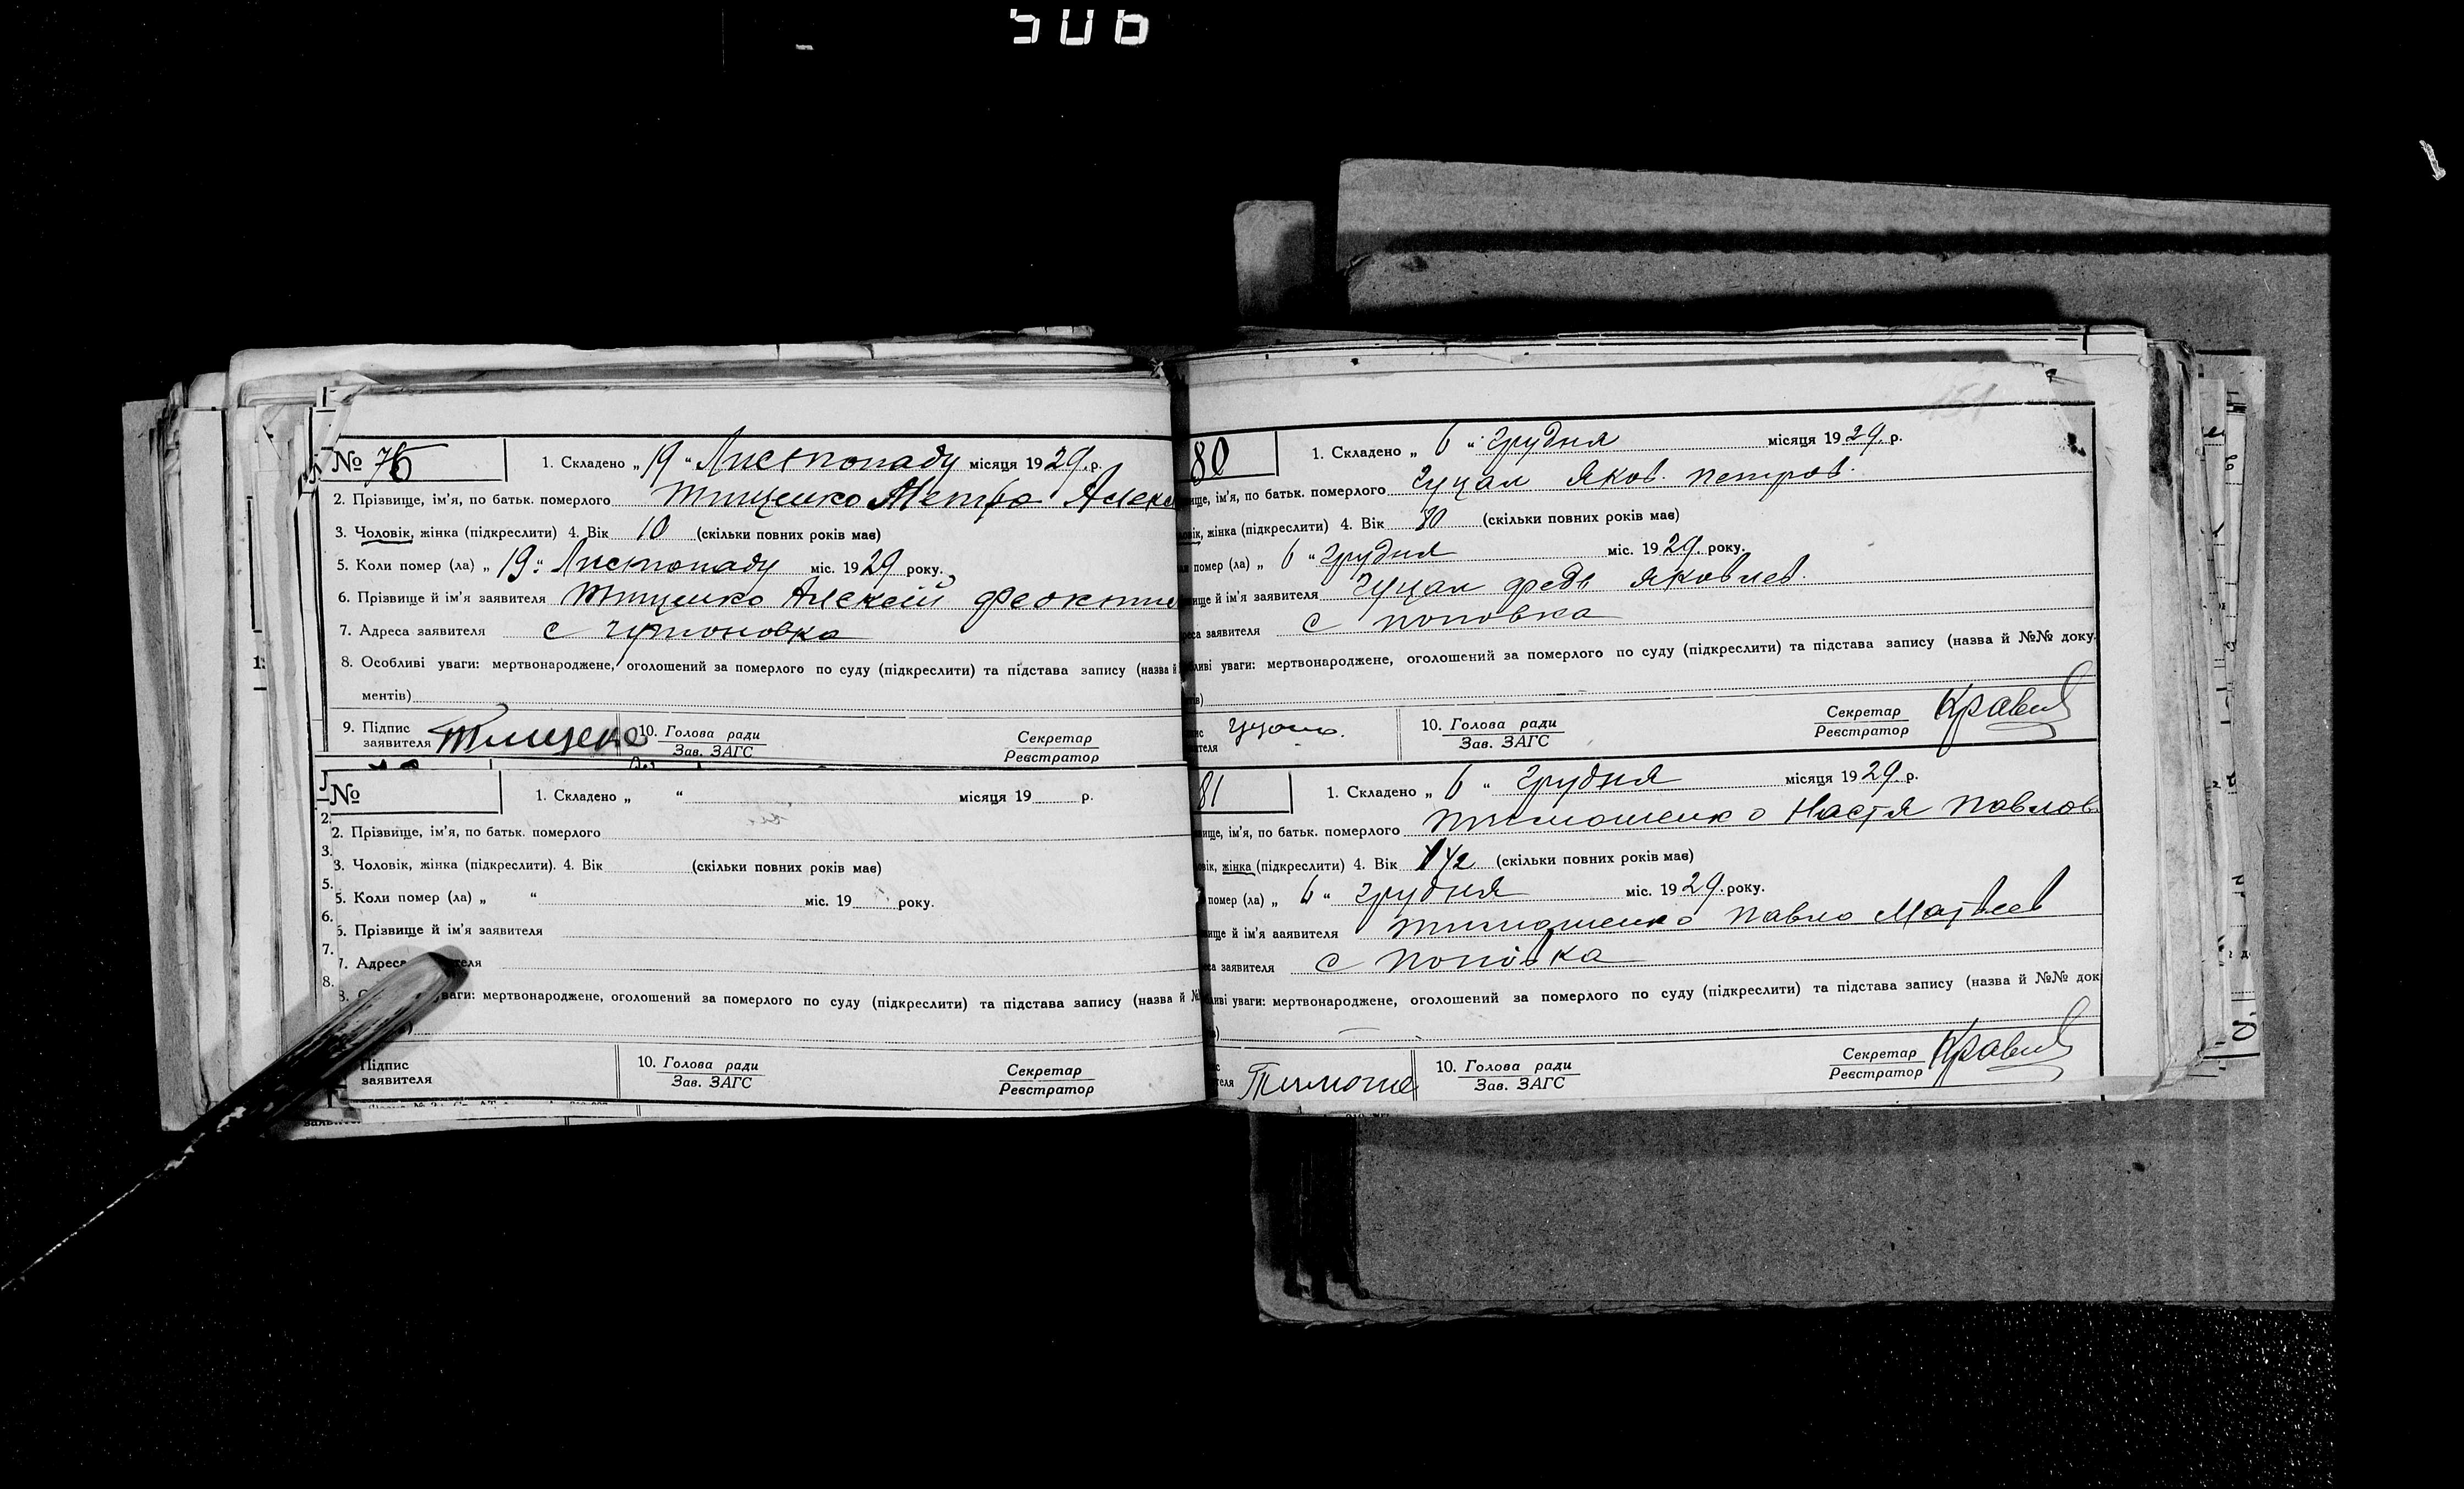 506
№ 76 1. Складено „19“ Листопаду місяця 1929 р.
2. Прізвище, ім'я, по батьк. померлого Тищенко Алекс
3. Чоловік, жінка (підкреслити) 4. Вік 10 (скільки повних років має)
5. Коли помер (ла) „19“ Листопаду міс. 1929 року.
6. Прізвище й ім'я заявителя Тищенко Алексій Феокти
7. Адреса заявителя с
8. Особливі уваги: мертвонароджене, оголошений за померлого по суду (підкреслити) та підстава запису (назва й
ментів)
9. Підпис заявителя Тищенко 10. Голова ради Зав. ЗАГС Секретар Реєстратор
№ 1. Складено „ “ місяця 19 р.
2. Прізвище, ім'я, по батьк. померлого
3. Чоловік, жінка (підкреслити). 4. Вік (скільки повних років має)
5. Коли помер (ла) „ “ міс. 19 року.
6. Прізвище й ім'я заявителя
7. Адреса теля
8. уваги: мертвонароджене, оголошений за померлого по суду (підкреслити) та підстава запису (назва й №
Підпис заявителя 10. Голова ради Зав. ЗАГС Секретар Реєстратор
151
80 1. Складено „6“ Грудня місяця 1929 р.
вище, ім'я, по батьк. померлого Гуцал Яков. Петров.
овік, жінка (підкреслити) 4. Вік 70 (скільки повних років має)
помер (ла) „6“ Грудня міс. 1929 року.
вище й ім'я заявителя Гуцал Федь Яковлев.
реса заявителя с Поповка
бливі уваги: мертвонароджене, оголошений за померлого по суду (підкреслити) та підстава запису (назва й №№ доку.
тів)
10. Голова ради Зав. ЗАГС Секретар Реєстратор
81 1. Складено „6“ Грудня місяця 1929 р.
вище, ім'я, по батьк. померлого Тимошенко Настя Павлов.
овік, жінка (підкреслити) 4. Вік 1 1/2 (скільки повних років має)
помер (ла) „6“ Грудня міс. 1929 року.
вище й ім'я заявителя Тимошенко Павло Матвеев
еса заявителя с Попівка
бливі уваги: мертвонароджене, оголошений за померлого по суду (підкреслити) та підстава запису (назва й №№ док
теля Тимоше 10. Голова ради Зав. ЗАГС Секретар Реєстратор